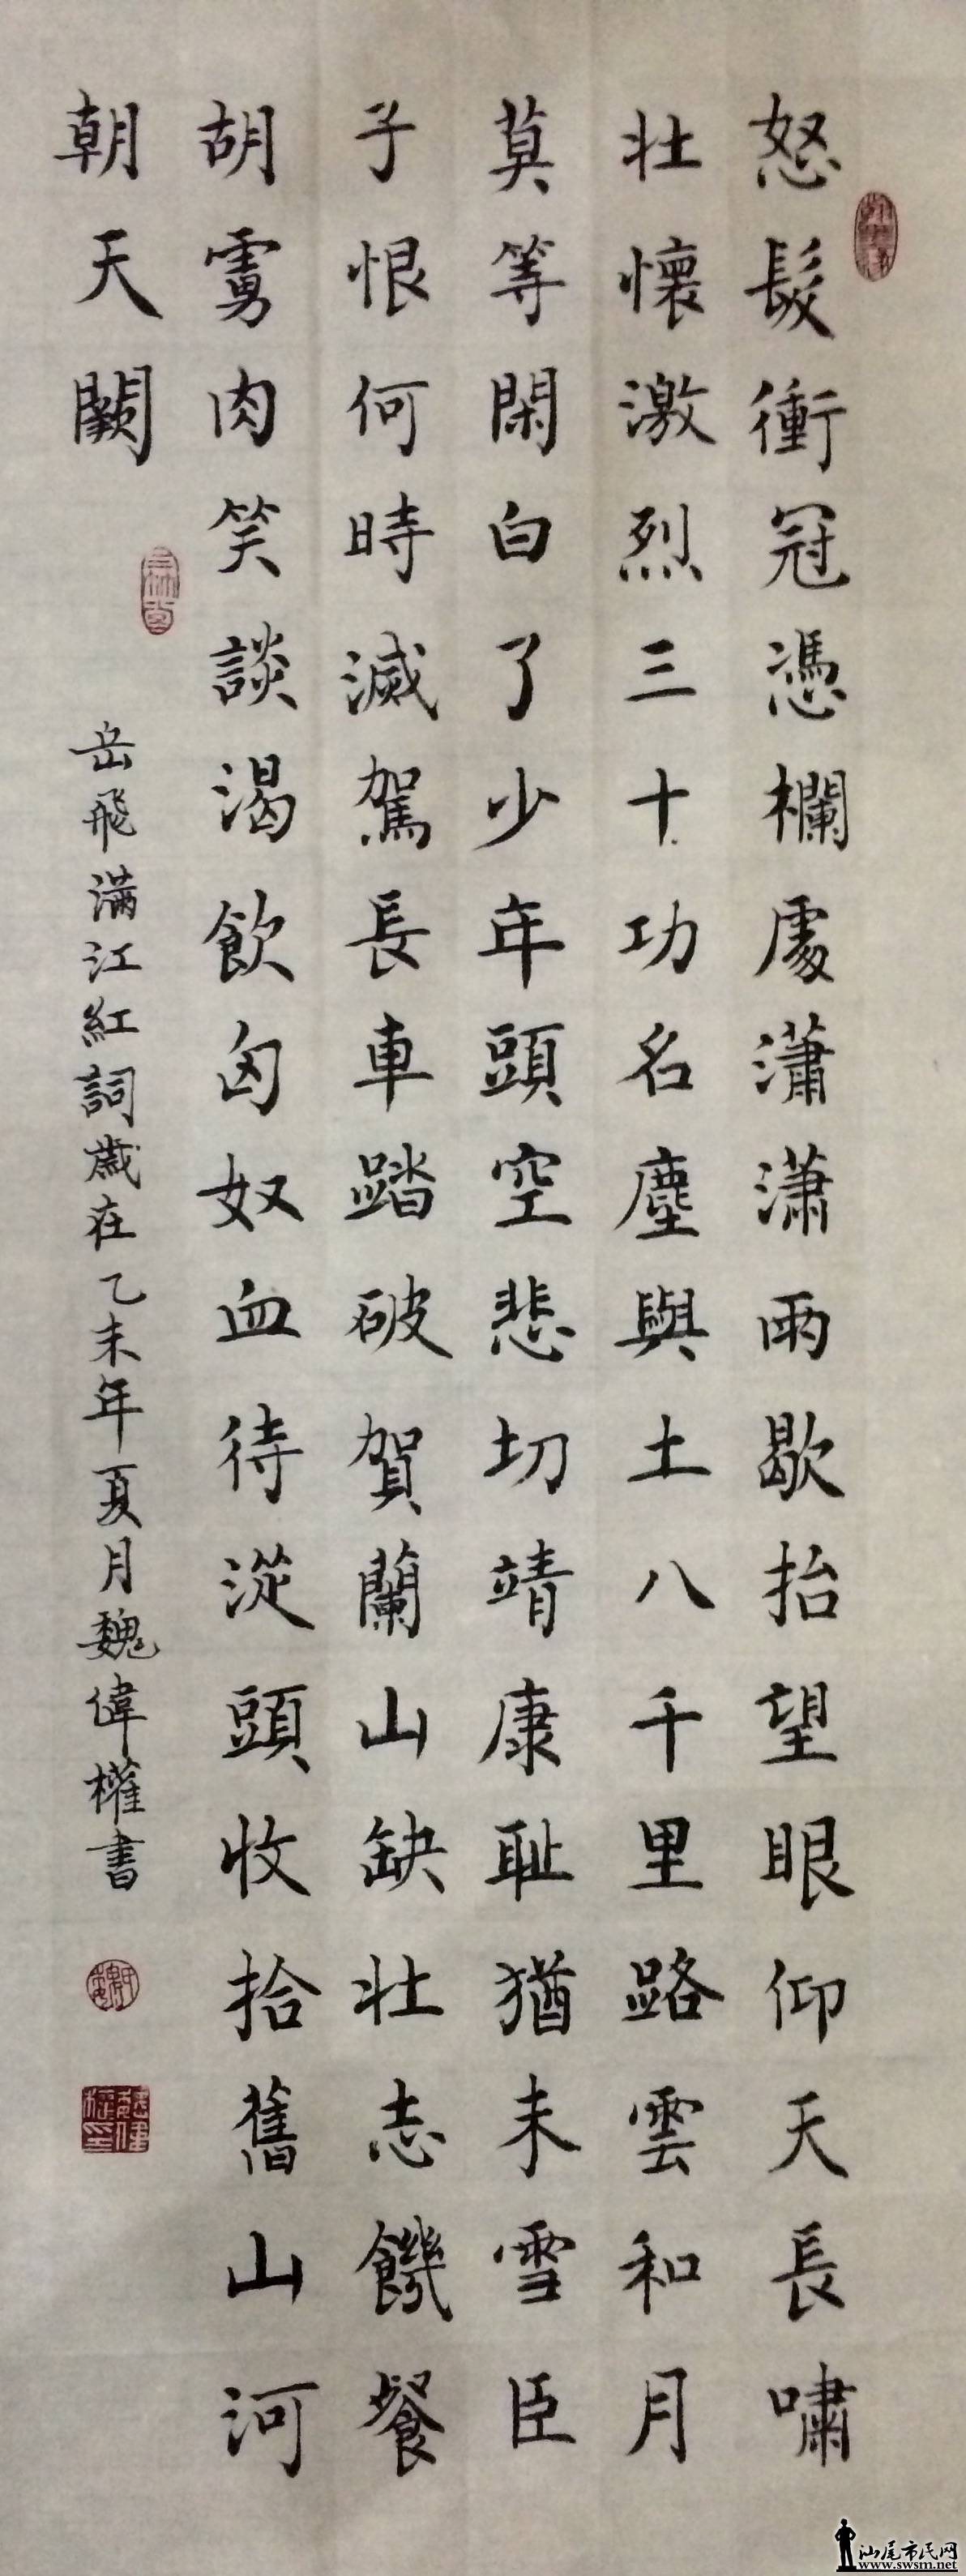 怒髮衝冠憑欄處瀟瀟雨歇抬望眼仰天長嘯
壯懷激烈三十功名塵與土八千里路雲和月
莫等閑白了少年頭空悲切靖康耻猶未雪臣
子恨何時滅駕長車踏破賀蘭山缺壯志饑餐
胡虜肉笑談渴飲匈奴血待從頭收拾舊山河
朝天闕
岳飛滿江紅詞歲在乙未年夏月魏偉權書
汕尾市民网
www.swsm.net